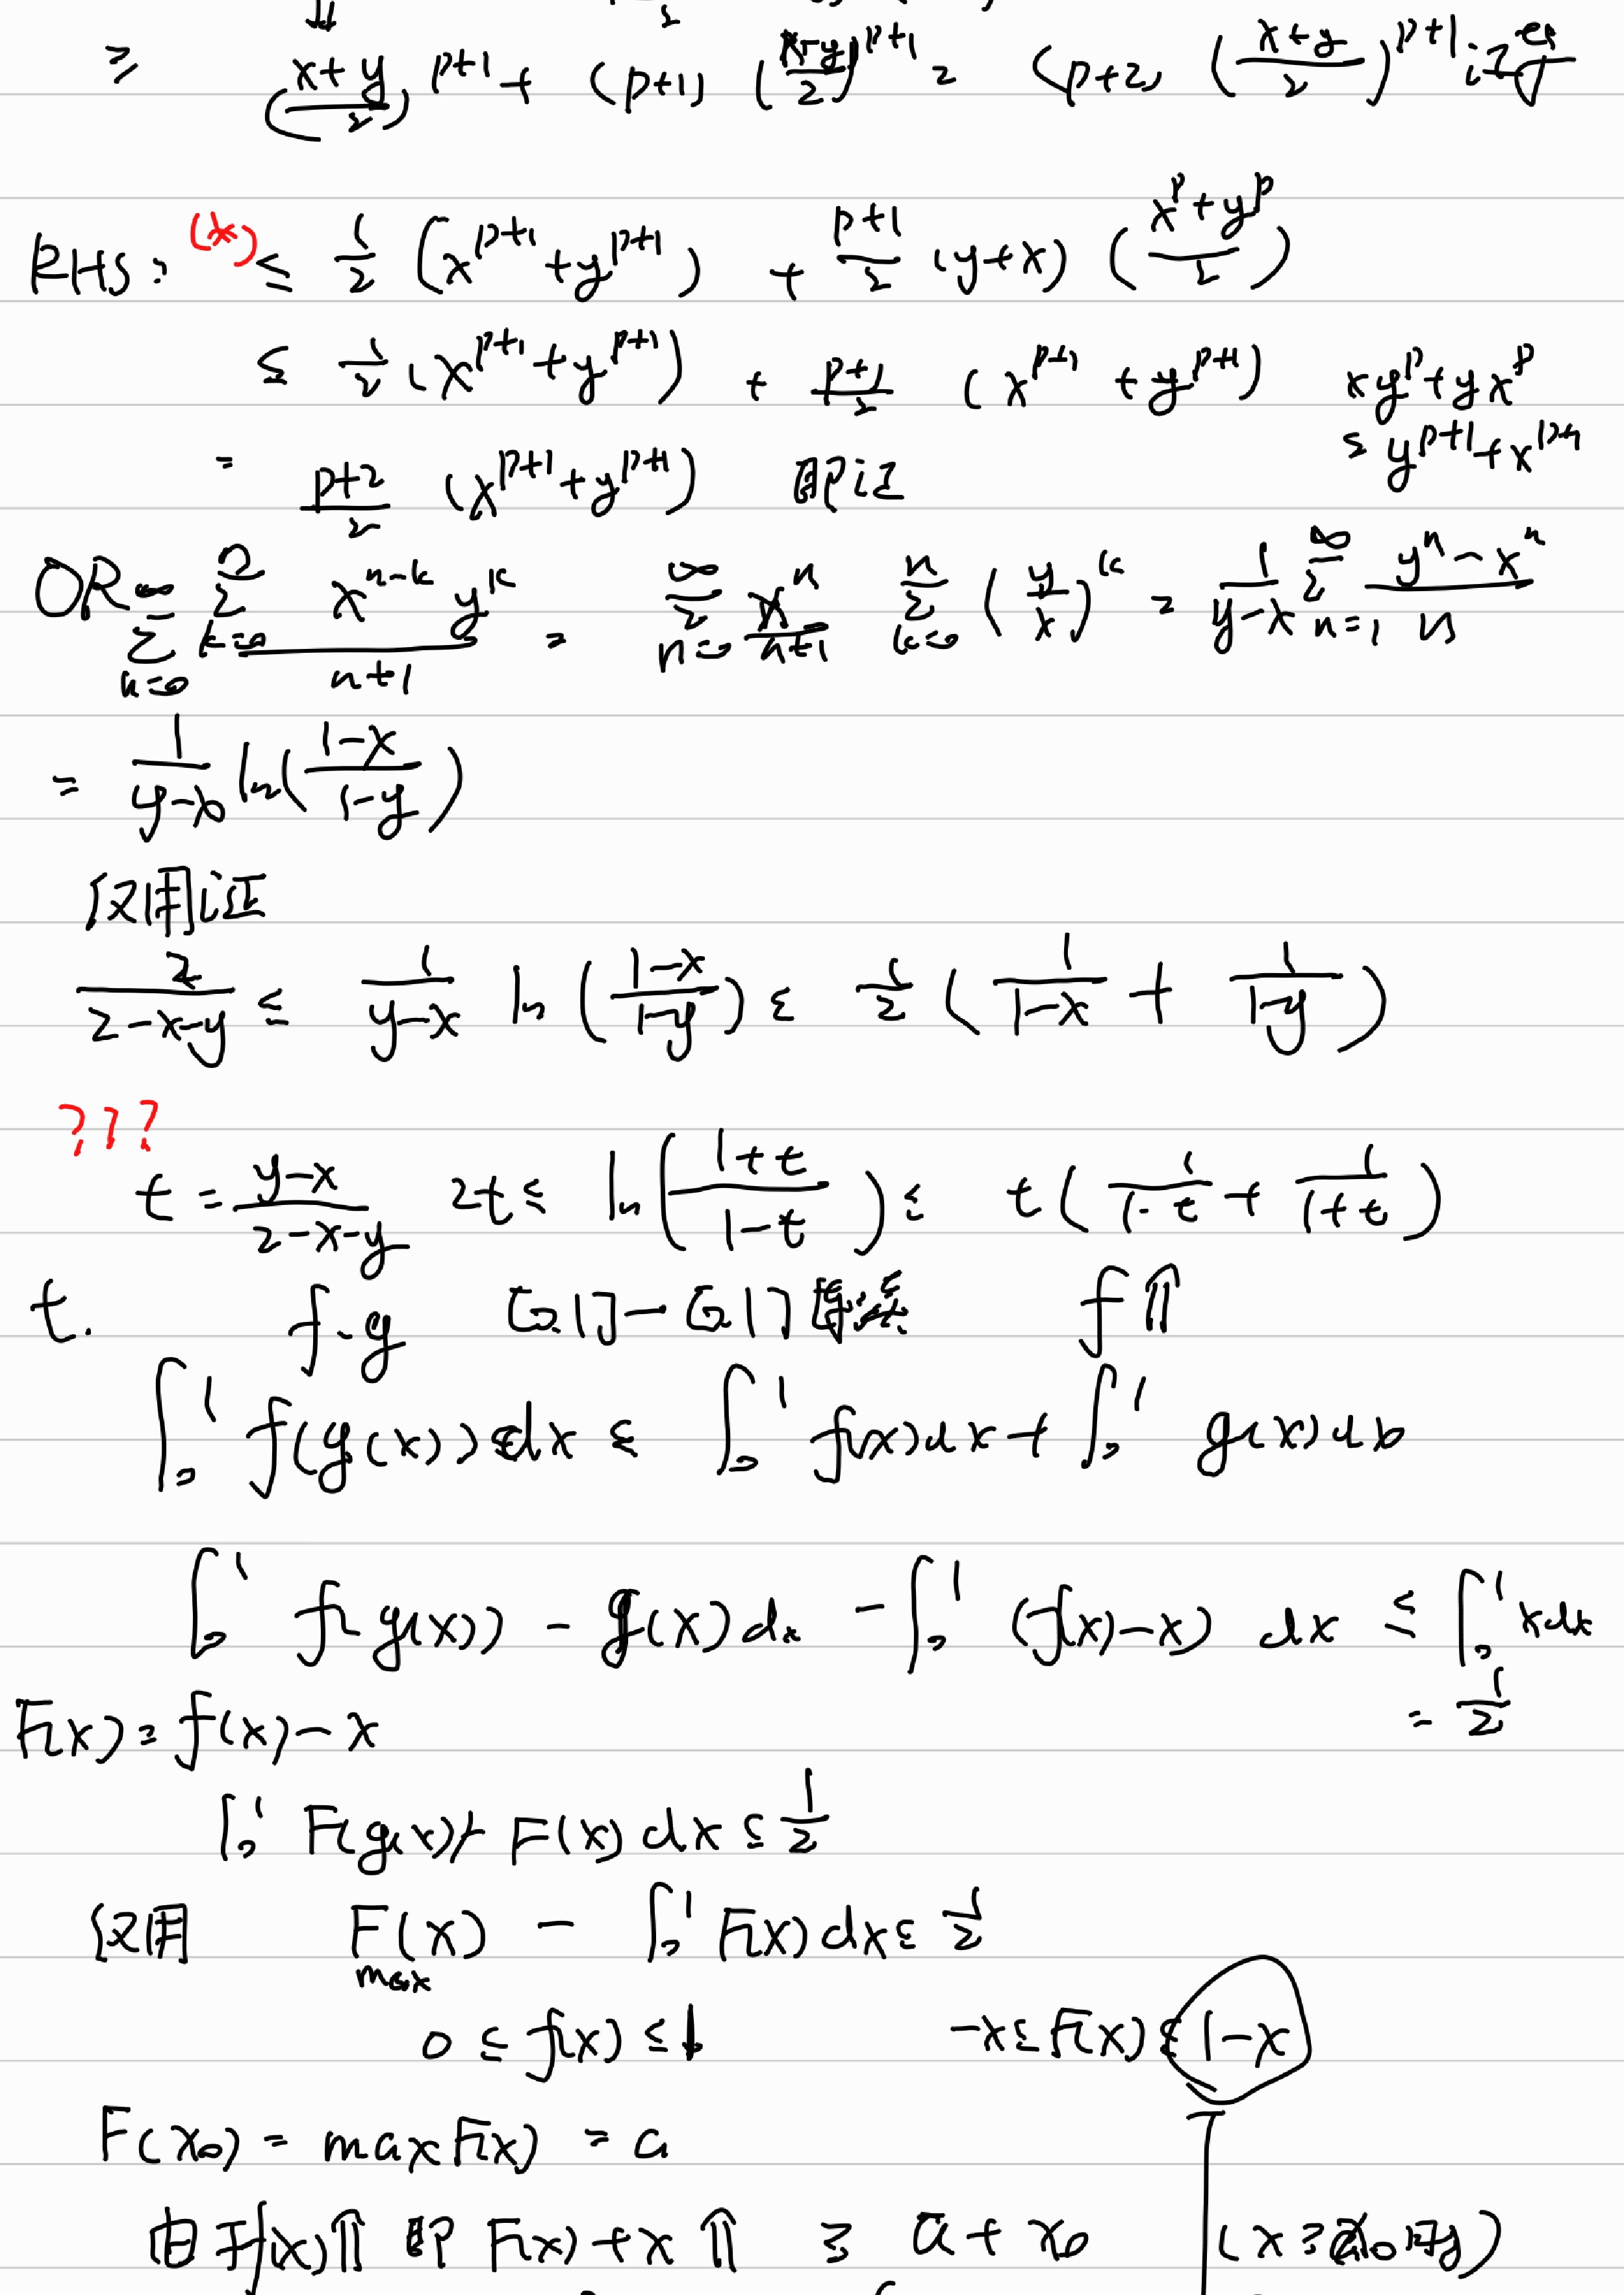 ≥ (x+y/2)^{p+1} + (p+1) (x+y/2)^{p+1} = (p+2) (x+y/2)^{p+1} 证
RHS: (*) ≤ 1/2 (x^{p+1}+y^{p+1}) + p+1/2 (y+x) (x^p+y^p/2)
≤ 1/2 (x^{p+1}+y^{p+1}) + p+1/2 (x^{p+1}+y^{p+1}) xy^p+yx^p
≤ y^{p+1}+x^{p+1}
= p+2/2 (x^{p+1}+y^{p+1}) 即证
OR ∑_{n=0}^∞ ∑_{k=0}^n x^{n-k} y^k / n+1 = ∑_{n=0}^∞ x^n/n+1 ∑_{k=0}^n (y/x)^k = 1/y-x ∑_{n=1}^∞ y^n-x^n/n
= 1/y-x ln(1-x/1-y)
仅用证
2/2-x-y ≤ 1/y-x ln(1-x/1-y) ≤ 1/2 (1/1-x + 1/1-y)
???
t = y-x/2-x-y 2t ≤ ln(1+t/1-t) ≤ t(1/1-t + 1/1+t)
t. f.g [0,1]→[0,1] 连续 f⇑
∫_0^1 f(g(x)) dx ≤ ∫_0^1 f(x)dx + ∫_0^1 g(x)dx
∫_0^1 f(g(x)) - g(x)dx - ∫_0^1 (f(x)-x) dx ≤ ∫_0^1 xdx
= 1/2
F(x) = f(x) - x
∫_0^1 F(g(x)) - F(x) dx ≤ 1/2
仅用 F(x)max - ∫_0^1 F(x)dx ≤ 1/2
0 ≤ f(x) ≤ 1 -x ≤ F(x) ≤ 1-x
F(x_0) = max F(x) = a
由于f(x)⇑ 即 F(x)+x ⇑ ≥ a+x_0 (x≥x_0时)